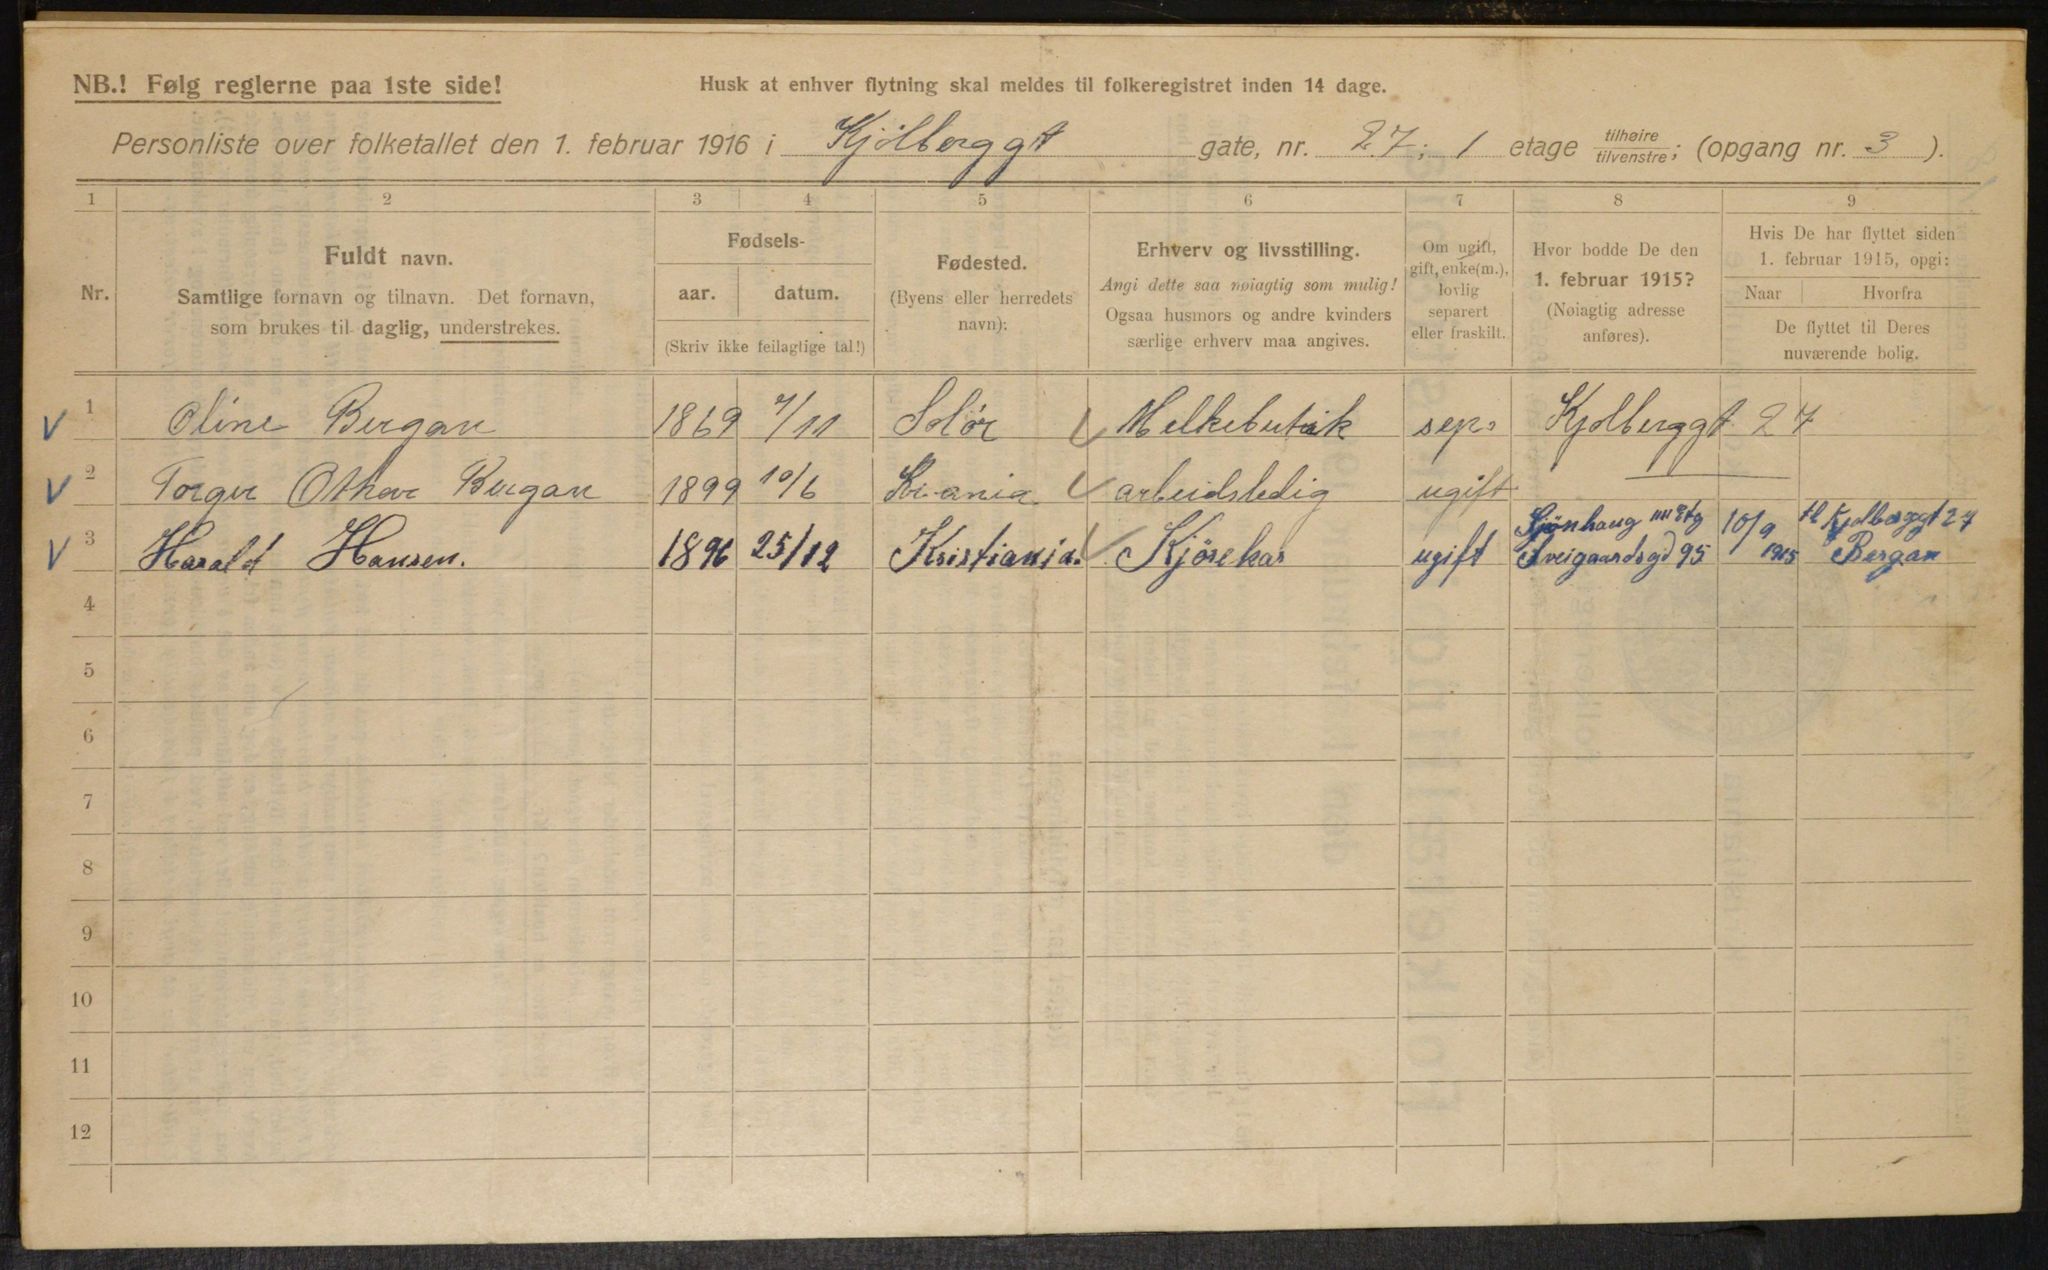 NB.! Følg reglerne paa 1ste side!
Husk at enhver flytning skal meldes til folkeregistret inden 14 dage.
Personliste over folketallet den 1. februar 1916 i Kjølberggt gate, nr. 27; 1 etage tilhøire / tilvenstre; (opgang nr. 3).
1 2 3 4 5 6 7 8 9
Nr.
Fuldt navn.
Samtlige fornavn og tilnavn. Det fornavn,
som brukes til daglig, understrekes.
Fødsels-
aar. datum.
(Skriv ikke feilagtige tal!)
Fødested.
(Byens eller herredets
navn):
Erhverv og livsstilling.
Angi dette saa nøiagtig som mulig!
Ogsaa husmors og andre kvinders
særlige erhverv maa angives.
Om ugift,
gift, enke(m.),
lovlig
separert
eller fraskilt.
Hvor bodde De den
1. februar 1915?
(Nøiagtig adresse
anføres).
Hvis De har flyttet siden
1. februar 1915, opgi:
Naar Hvorfra
De flyttet til Deres
nuværende bolig.
1 Oline Bergan 1869 7/11 Solør Melkebutik sep. Kjølberggt 27
2 Torger Othar Bergan 1899 10/6 Kr.ania arbeidsledig ugift —
3 Harald Hansen. 1896 25/12 Kristiania. Kjørekar ugift
Sveigaardsgd 95
10/9 1915
Kjølberggt 27
Bergan
4
5
6
7
8
9
10
11
12